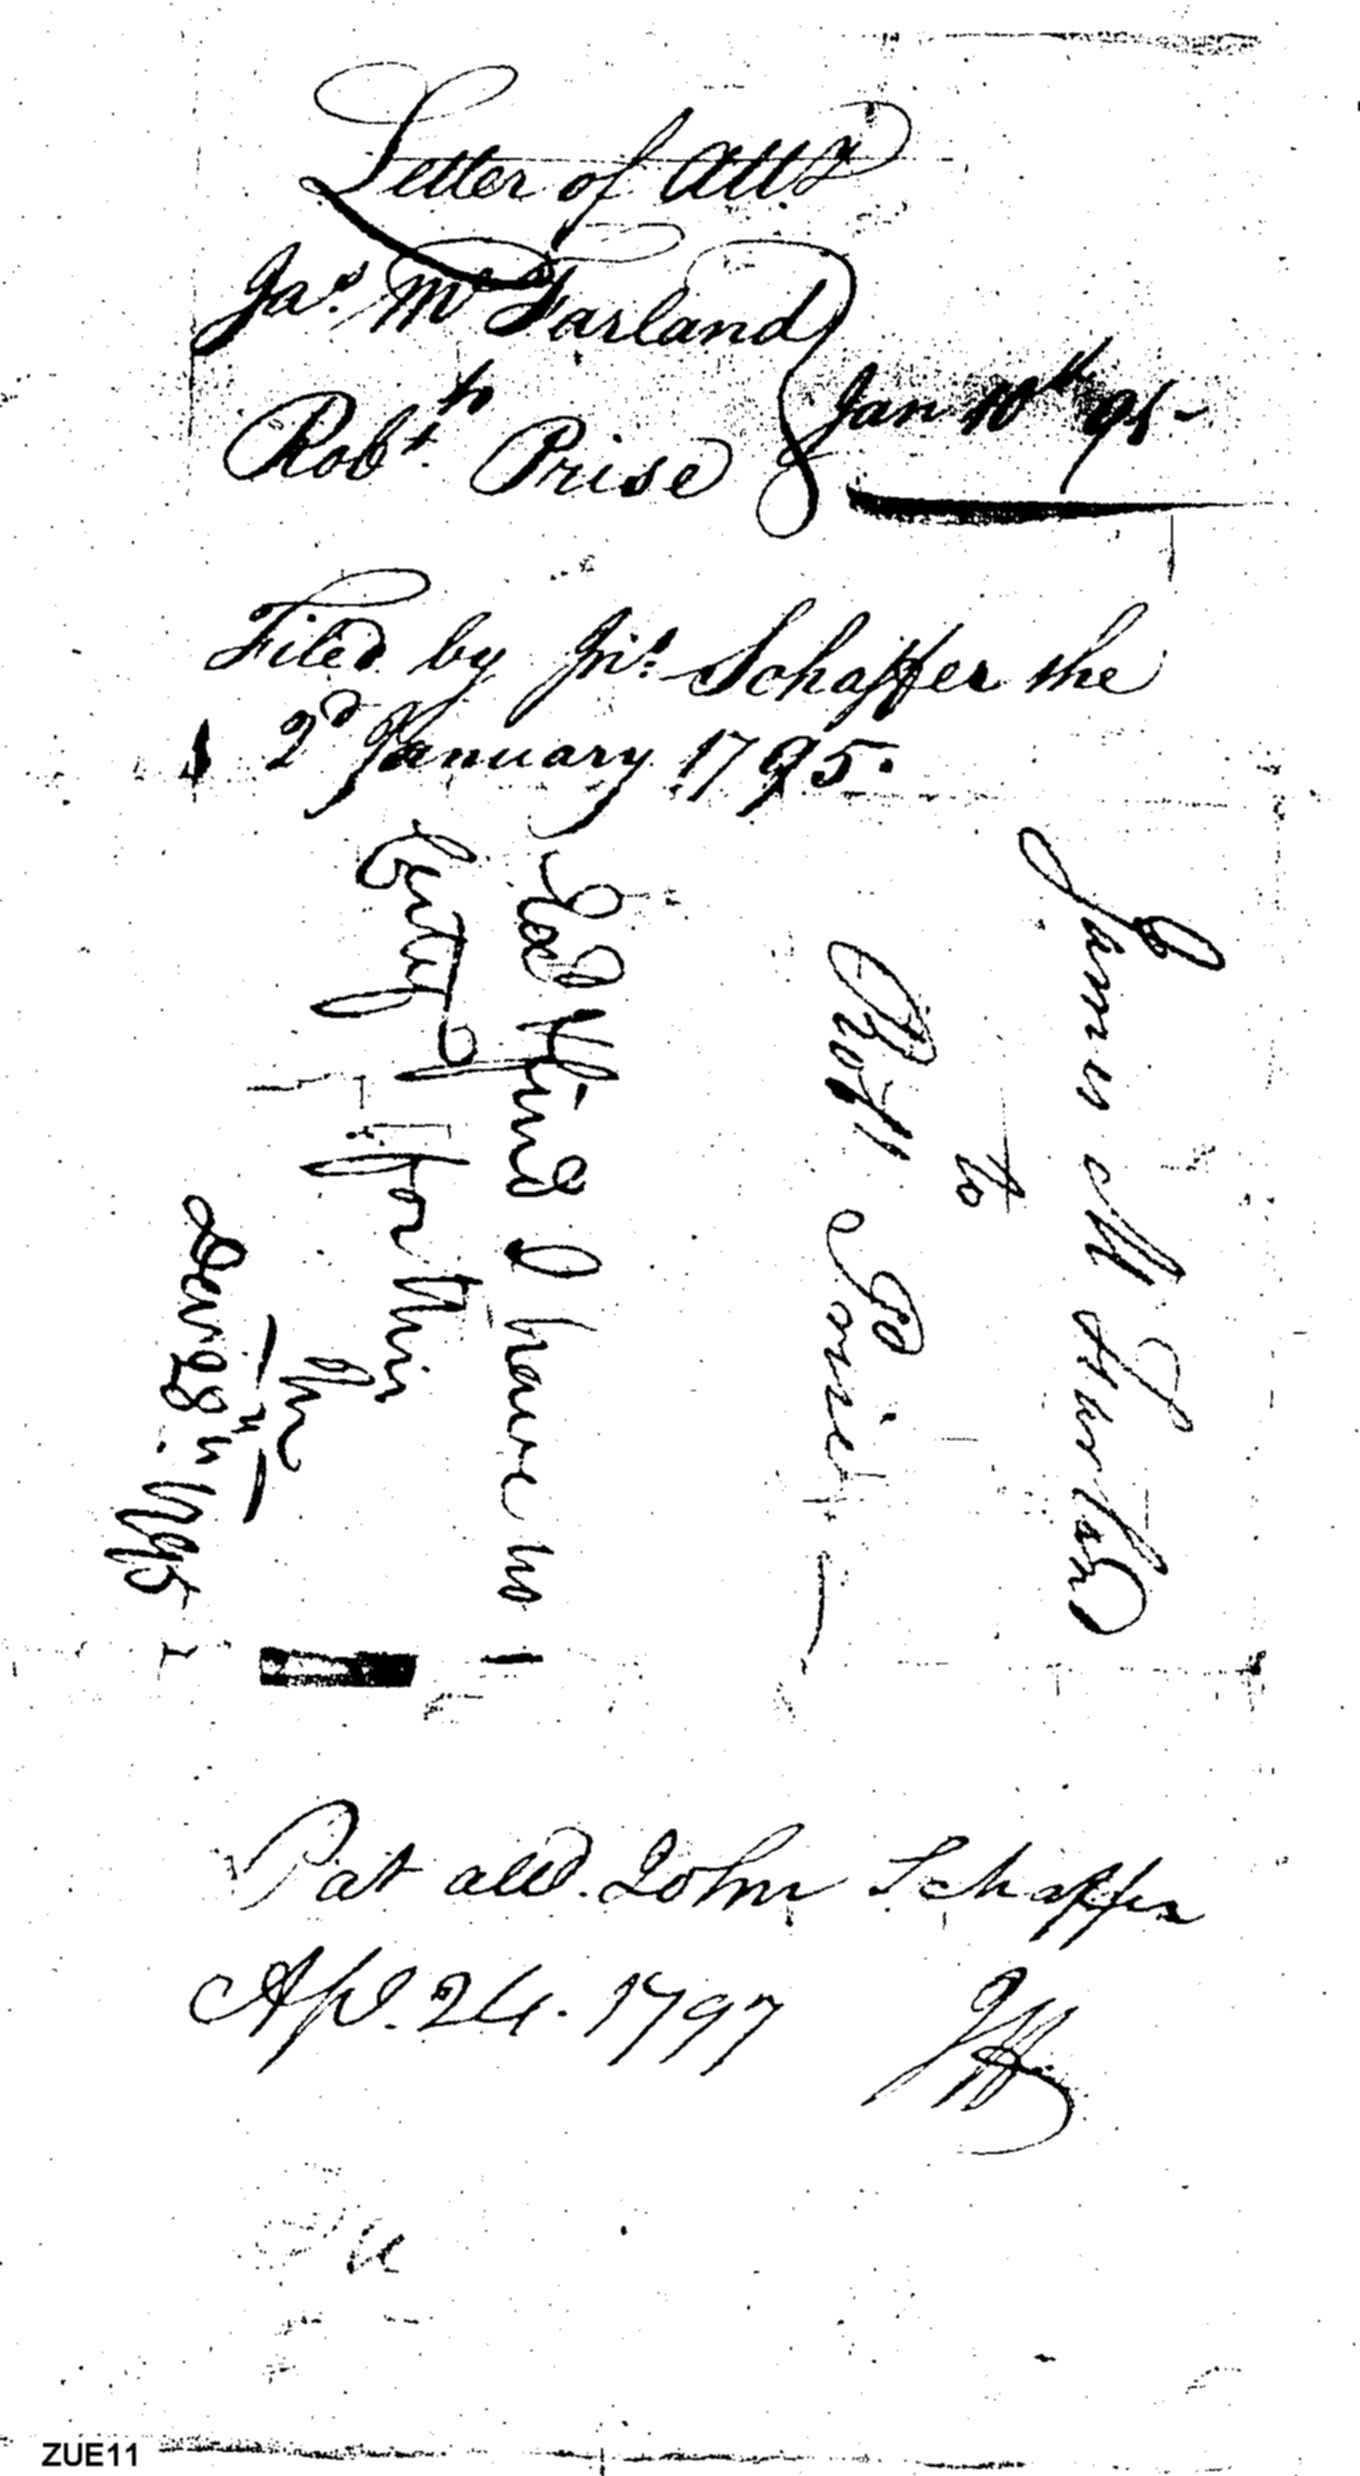 Letter of Atty
Jas. McFarland
to
Robt. Prise
Jan 10th 95
Filed by Jno. Schaffer the
2d January 1795.
James McFarland
to
Robt Price
I have no
for this
Dec 28th 1795
Pat alld. John Schaffer
Apl. 24. 1797
ZUE11